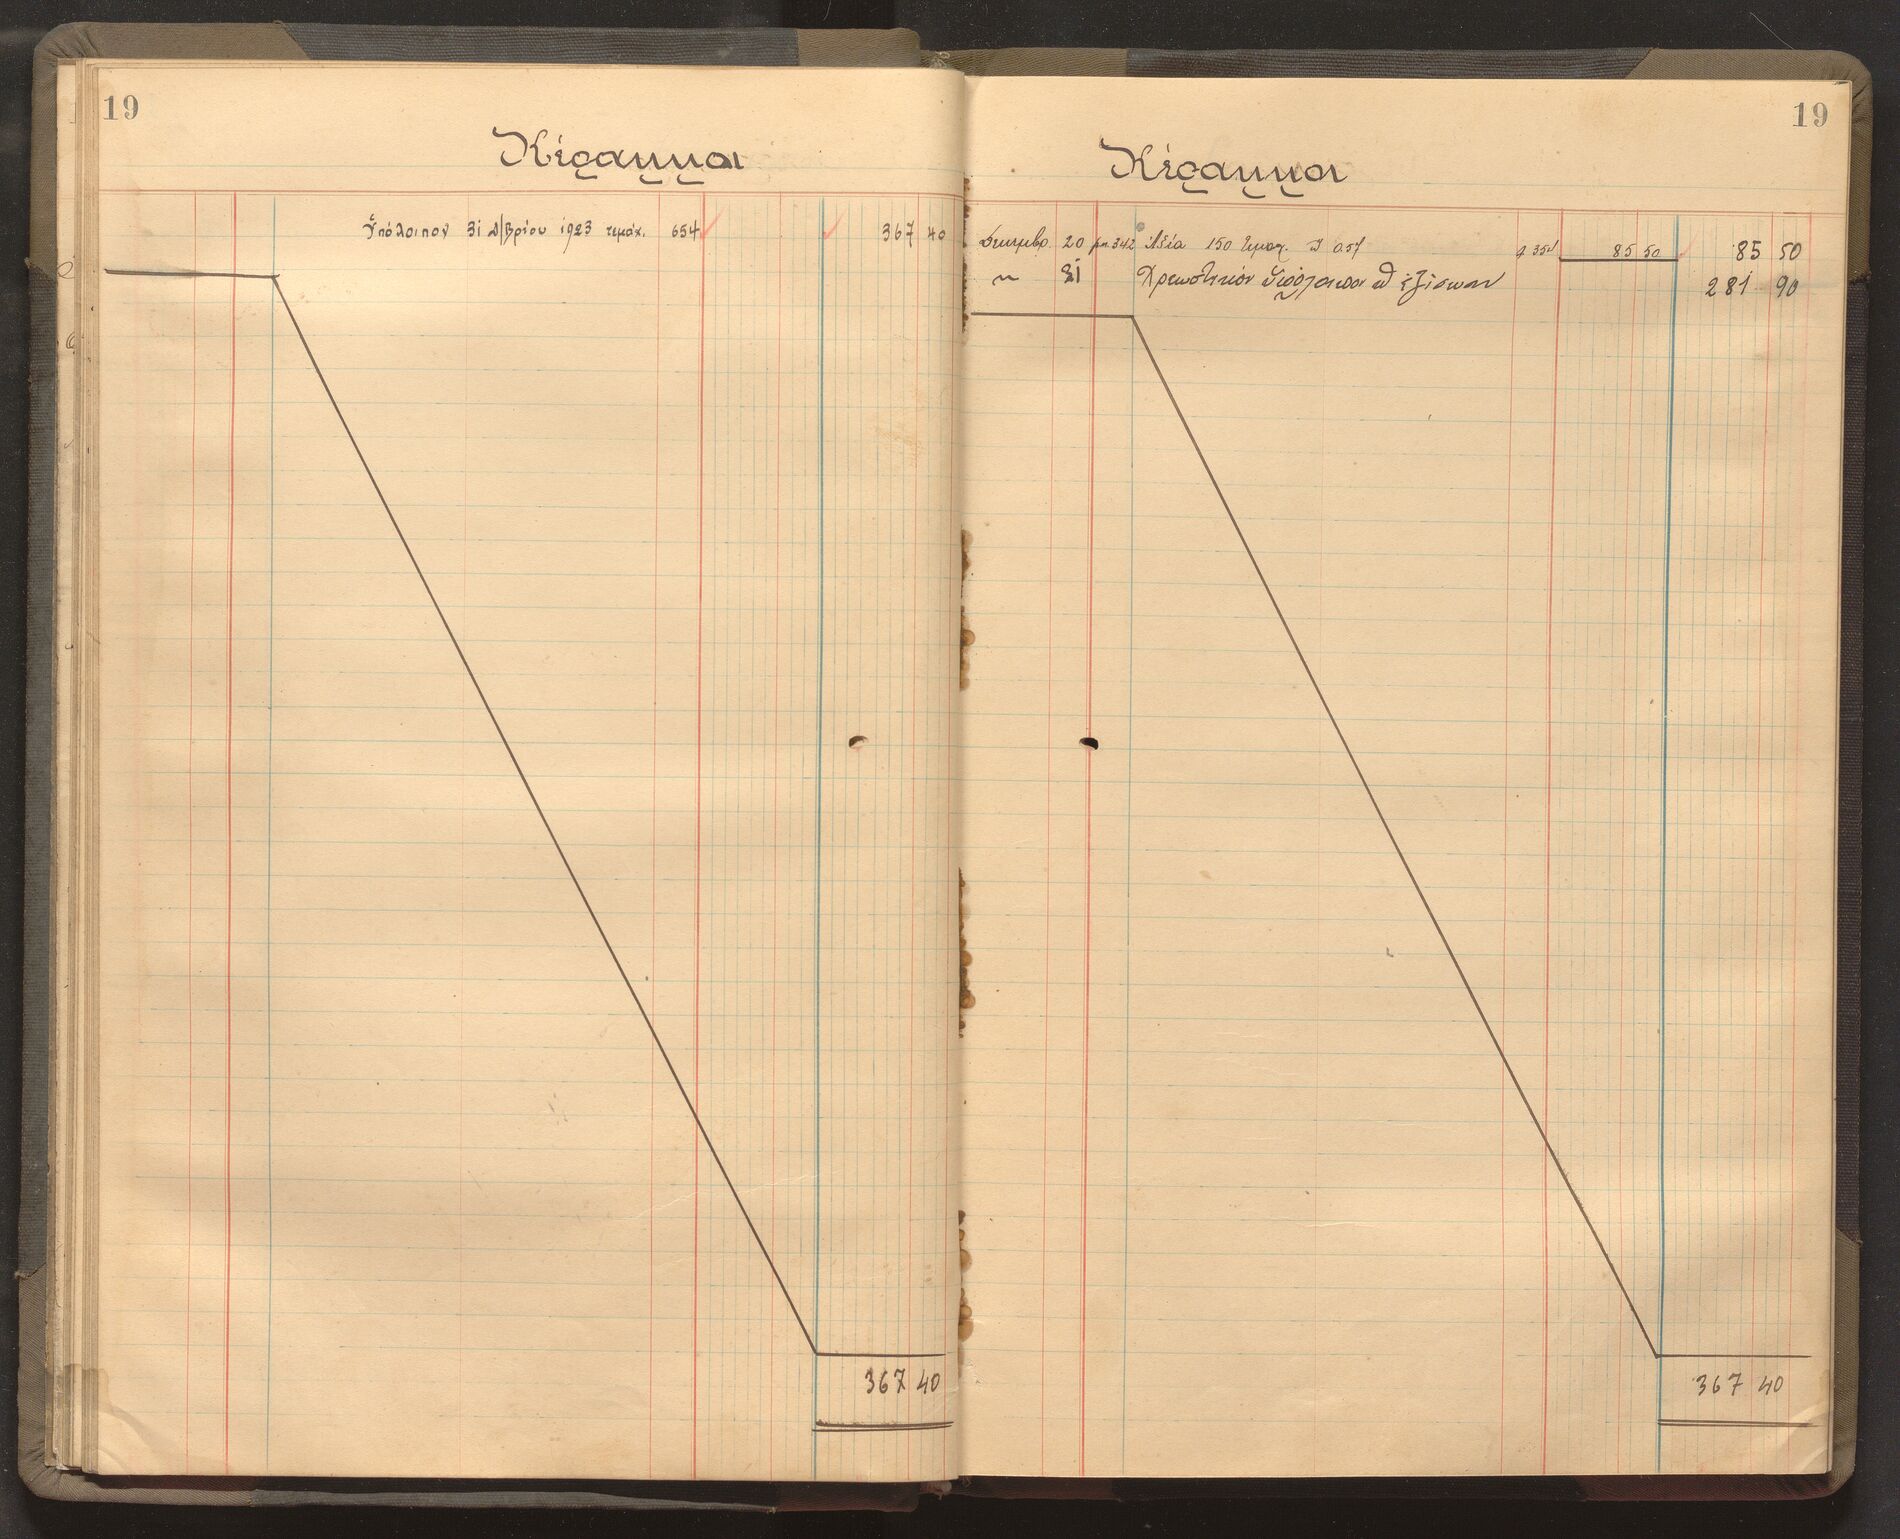 19
Κέραμμοι
Ὑπόλοιπον 31 Δ/βρίου 1923 τεμάχ. 654 367 40
367 40
19
Κέραμμοι
Δεκεμβρ. 20 342 Ἀξία 150 τεμαχ. 0.57 85 50 85 50
" 31 Χρεωστικόν Ὑπόλοιπον ἐξίσωσιν 281 90
367 40